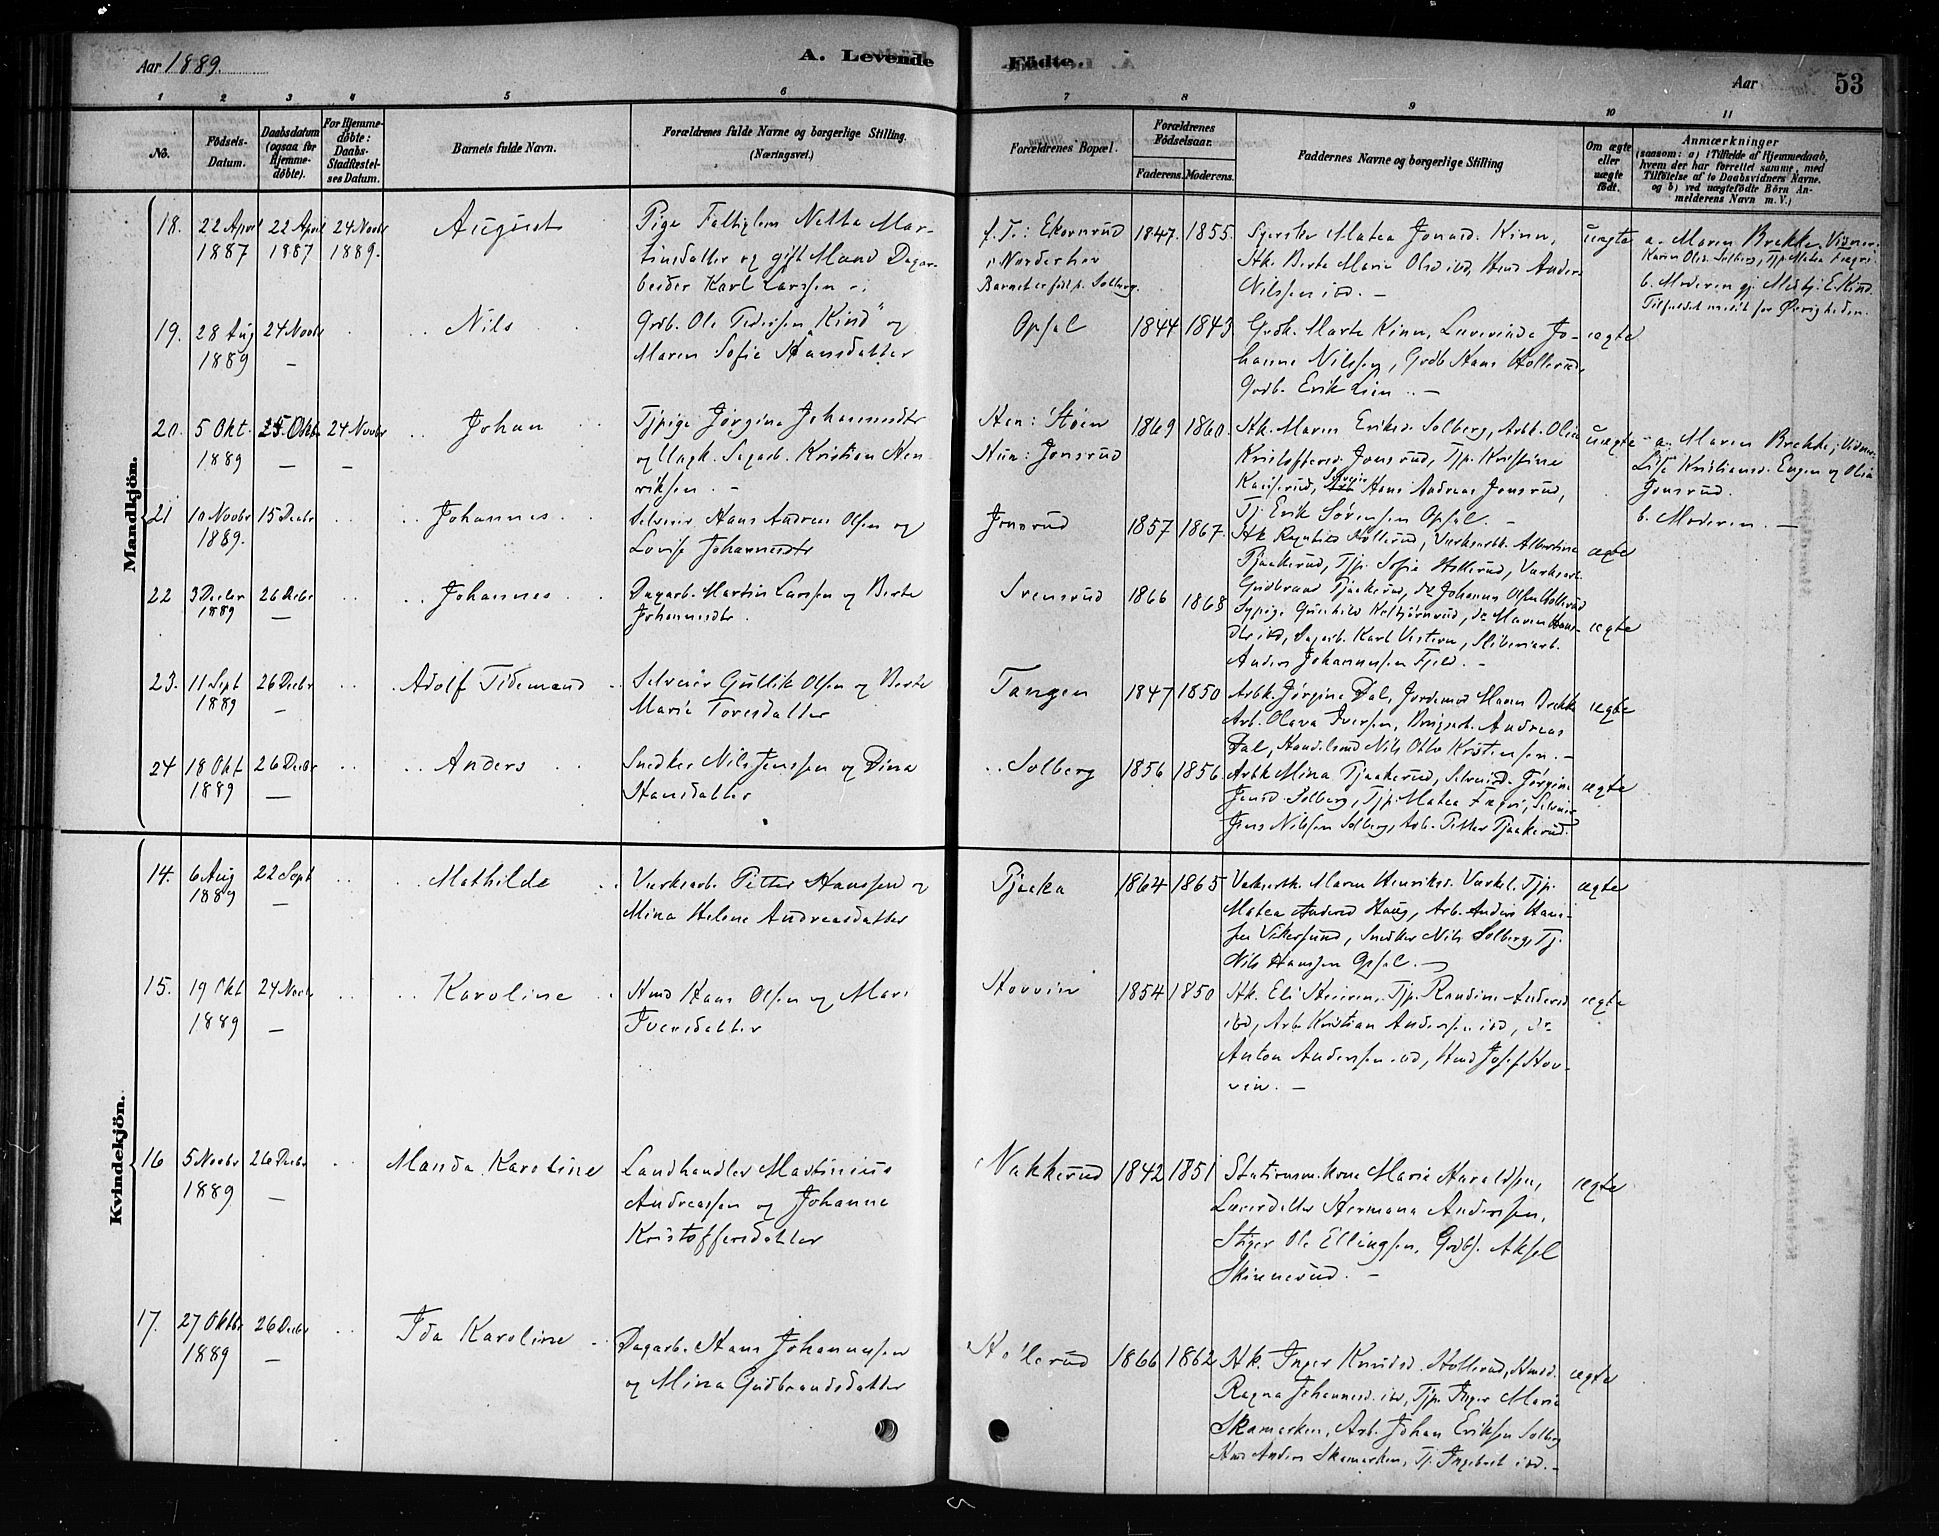 Aar 1889.
A. Levende Födte.
Aar 53
1 2 3 4 5 6 7 8 9 10 11
No.
Födsels-Datum.
Daabsdatum (ogsaa for Hjemmedöbte).
For Hjemmedöbte: Daabs-Stadfæstelses Datum.
Barnets fulde Navn.
Forældrenes fulde Navne og borgerlige Stilling. (Næringsvei.)
Forældrenes Bopæl.
Forældrenes Födselsaar.
Faderens. Moderens.
Faddernes Navne og borgerlige Stilling
Om ægte eller uægte födt.
Anmærkninger
(saasom: a) i Tilfælde af Hjemmedaab, hvem der har forrettet samme, med Tilföielse af to Daabsvidners Navne. og b) ved uægtefödte Börn Anmelderens Navn m. V.)
Mandkjön.
18. 22 April 1887 22 April 1887 24 Novbr 1889. August
Pige Netta Mar-
tinsdatter og gift Mand Dagar-
beider Karl Larssen
f. T.: Ekornrud
i Norderhov
Barnet er født p. Solberg
1847. 1855.
Matea Jonsd. Kinn,
Hk. Berte Marie Olsd ibd, Hmd Anders
Nilssen ibd. —
uægte
a. Maren Brekke, Vidner:
Karen Olsd. Solberg, Tjp. Matea
b. Moderen
19. 28 Aug 1889 24 Novbr — Nils
Grdb. Ole Pedersen "Kind" og
Maren Sofie Hansdatter
Opsal 1844 1843
Grdk. Marte Kinn, Jo-
hanne Nilssen, Grdb Hans Hollerud,
Grdb. Erik Lien. —
ægte
20. 5 Okt. 1889 25 Okt. — 24 Novbr — Johan
Tjpige Jørgine Johannesdtr
og Ungk. Sagarb. Kristian Hen-
riksen. —
Han: Støen
Hun: Jonsrud
1869 1860.
Hk. Maren Eriksd. Solberg, Arbk. Olia
Kristoffersd. Jonsrud, Tjp. Kristine
Hans Andreas Jonsrud,
Tj. Erik Sørensen Opsal. —
uægte
a. Maren Brekke, Vidner:
Lise Kristiansd. Engen og Olia
Jonsrud.
b. Moderen. —
21 10 Novbr 1889. 15 Decbr Johannes
Selveier Hans Andreas Olsen og
Lovise Johannesdtr
Jonsrud 1857 1867.
Hk. Ragnhild Hollerud, Værksarbk. Albertine
Tjaakerud, Tjp. Sofie Hollerud, Værksarb.
Gudbrand Tjaakerud, do Johannes Olsen Hollerud
ægte
22 3 Decbr 1889 26 Decbr — Johannes
Dagarb. Martin Larssen og Berte
Johannesdtr.
Svensrud 1866 1868
Sypige Gunhild Ketbjørnrud, do Maren Hans-
dtr ibd, Sagarb. Karl Vestern, Sliberiarb.
Anders Johannessen Fjeld. —
ægte
23. 11 Sept 1889 26 Decbr — Adolf Tidemand
Selveier Gullik Olsen og Berte
Marie Toresdatter
Tangen 1847 1850
Arbk. Jørgine Dal, Jordemod. Maren Brekke
Arb. Olava Iversen, Andreas
Dal, Handelsmd Nils Otto Kristensen. —
ægte
24 18 Okt 1889 26 Decbr — Anders
Snedker Nils Jenssen og Dina
Hansdatter
Solberg 1856 1856.
Arbk Mina Tjaakerud, Jørgine
Jensd. Solberg, Tjp. Matea Selveier
Jens Nilssen Solberg, Arb. Petter Tjaakerud.
ægte
Kvindekjön.
14. 6 Aug 1889 22 Sept — Mathilde
Værksarb. Petter Hanssen og
Mina Helene Andreasdatter
Tjaaka 1864 1865
Maren Henriksd. Tjp.
Matea Andersd Haug, Arb. Anders Hans-
sen Vikersund, Snedker Nils Solberg, Tj.
Nils Hanssen Opsal. —
ægte
15. 19 Okt 1889 24 Novbr — Karoline
Hmd Hans Olsen og Mari
Iversdatter
Hovvin 1854 1850
Hk. Eli Tjp. Randine Andersd
ibd, Arb Kristian Anderssen ibd, do
Anton Anderssen ibd, Hmd Josef Hov-
vin. —
ægte
16 5 Novbr 1889 26 Decbr — Manda Karoline
Landhandler Martinius
Andreassen og Johanne
Kristoffersdatter
Nakkerud 1842 1851
Stationsm. kone Marie Haraldsen,
Hermana Anderssen,
Stiger Ole Ellingsen, Grdbs. Aksel
Skinnerud. —
ægte
17. 27 Oktbr 1889 26 Decbr — Ida Karoline
Dagarb. Hans Johannessen
og Mina Gudbrandsdatter
Hollerud 1866 1862
Hk. Inger Knudsd. Hollerud,
Ragna Johannesd. ibd, Tjp. Inger Marie
Skamarken, Arb. Johan Eriksen Solberg
Hmd Anders Skamarken, Tj. Ingebret ibd. —
ægte